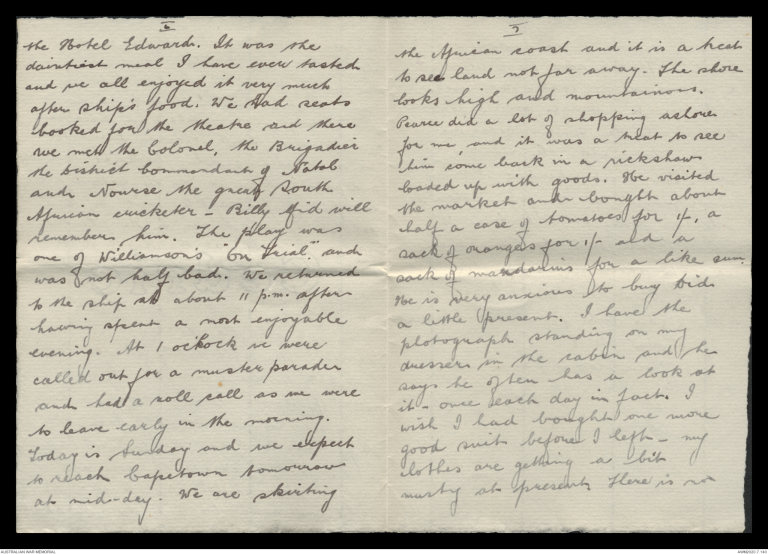 6
the Hotel Edward. It was the
daintiest meal I have ever tasted
and we all enjoyed it very much
after ship's food. We had seats
booked for the theatre and there
we met the Colonel, the Brigadier
the District Commandant of Natal
and Nourse the great South
African cricketer - Billy Gid will
remember him. The play was
one of Williamsons "On Trial" and
was not half bad. We returned
to the ship at about 11 p.m. after
having spent a most enjoyable
evening. At 1 o'clock we were
called out for a muster parade
and had a roll call as we were
to leave early in the morning.
Today is Sunday and we expect
to reach Capetown tomorrow
at mid-day. We are skirting
7
the African coast and it is a treat
to see land not far away. The shore
looks high and mountainous.
Pearce did a lot of shopping ashore
for me, and it was a treat to see
him come back in a rickshaw
loaded up with goods. He visited
the market and bought about
half a case of tomatoes for 1/-, a
sack of oranges for 1/- and a
sack of mandarins for a like sum.
He is very anxious to buy Sid
a little present. I have the
photograph standing on my
dresser in the cabin and he
says he often has a look at
it - once each day in fact. I
wish I had bought one more
good suit before I left - my
clothes are getting a bit
musty at present. There is no
AUSTRALIAN WAR MEMORIAL